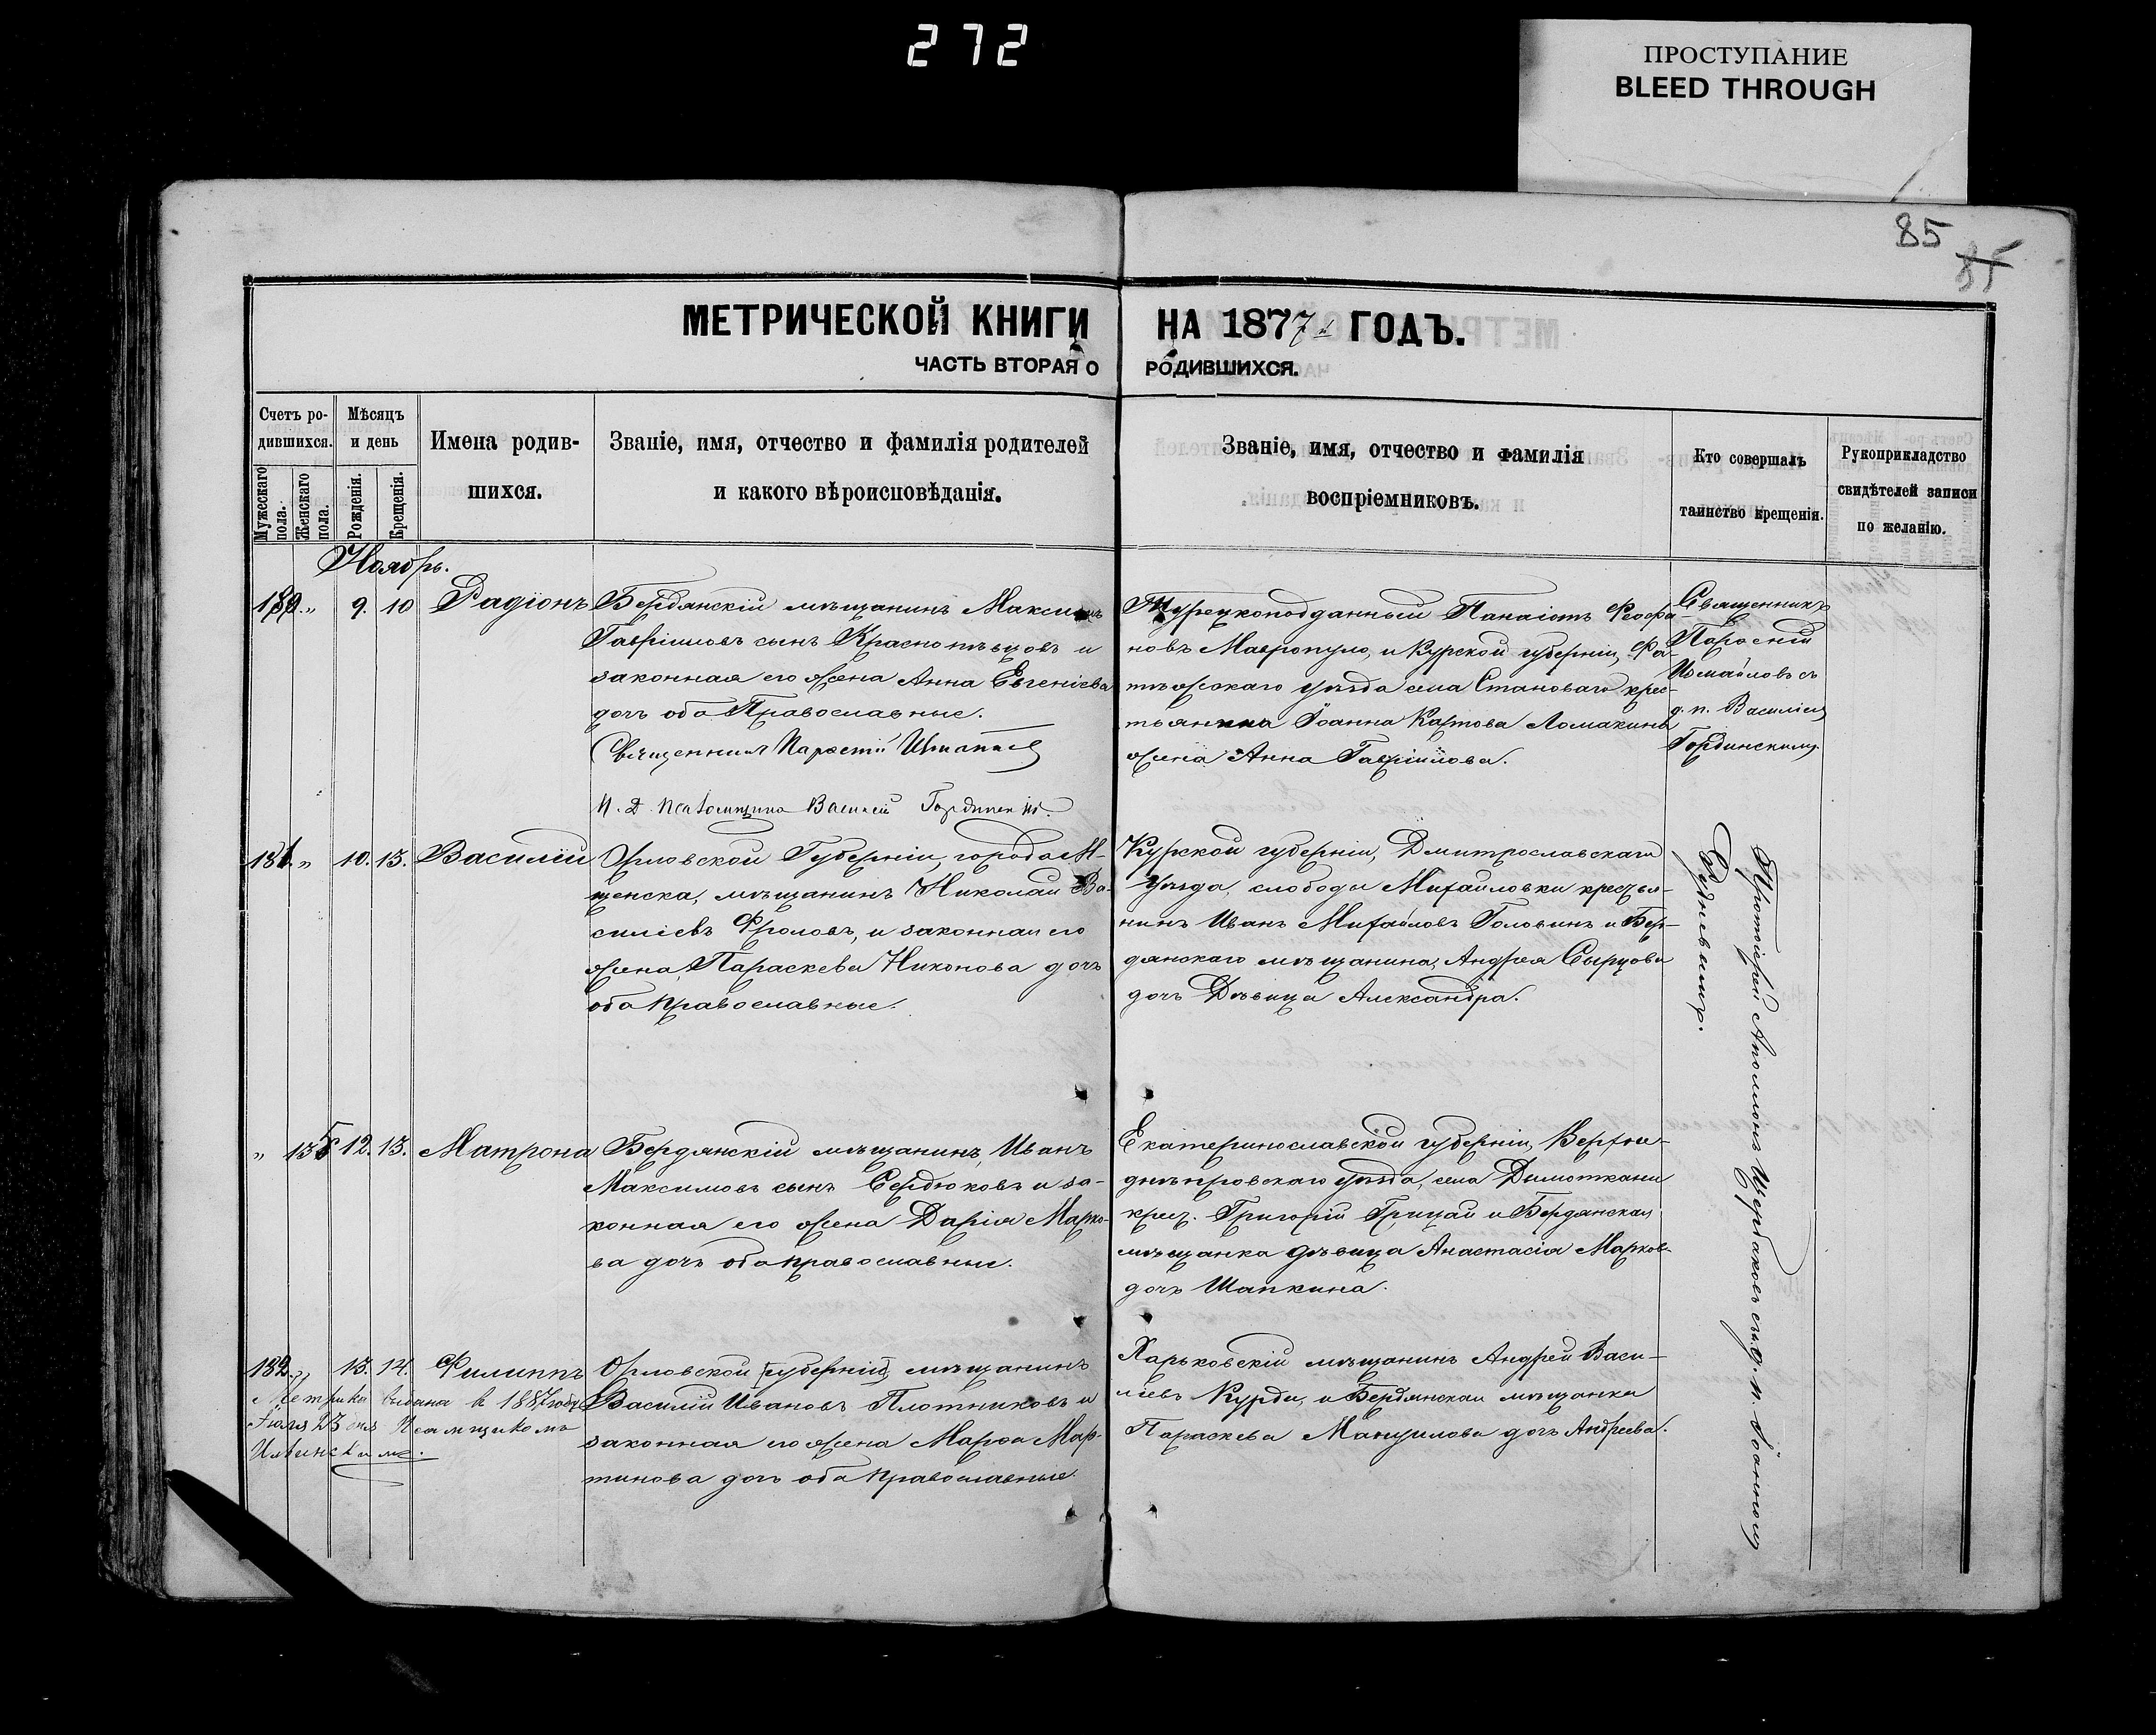 272
ПРОСТУПАНИЕ
BLEED THROUGH
85
85
МЕТРИЧЕСКОЙ КНИГИ НА 1877 ГОДЪ.
ЧАСТЬ ВТОРАЯ О РОДИВШИХСЯ.
Счетъ ро-
дившихся.
Мужескаго пола.
Женскаго пола.
Мѣсяцъ
и день
Рожденія.
Крещенія.
Имена родив-
шихся.
Званіе, имя, отчество и фамилія родителей
и какого вѣроисповѣданія.
Званіе, имя, отчество и фамилія
воспріемниковъ.
Кто совершалъ
таинство крещенія.
Рукоприкладство
свидѣтелей записи
по желанію.
Ноябрь.
180. „ 9. 10 Радіонъ
Бердянскій мѣщанинъ Максимъ
Гавріиловъ сынъ и
законная его жена Анна Евгеніева
дочь оба Православные.
Священникъ Парѳеній
И. Д. Псаломщика Василій Гординскій.
Турецкоподданный Панаіотъ Феофа-
новъ Мавропуло, и Курской губерніи, Фа-
тѣжскаго уѣзда села Становаго крес-
тьянина Іоанна Карпова Ломакина
жена Анна Гавріилова.
Священникъ
Парѳеній
Измаиловъ съ
д. п. Василіемъ
Гординскимъ.
181. „ 10. 13. Василій
Орловской Губерніи, города М-
ценска, мѣщанинъ Николай Ва-
силіевъ Фроловъ, и законная его
жена, Параскева Никонова дочь
оба православные.
Курской губерніи, Дмитрославскаго
уѣзда, слободы Михайловки крестья-
нинъ Иванъ Михайловъ Головинъ и Бер-
дянскаго мѣщанина, Андрея Сырцова
дочь Дѣвица Александра.
Протоіерей Аполлонъ Щербаковъ съ и. д. п. Іоанномъ
„ 135 12. 13. Матрона
Бердянскій мѣщанинъ, Иванъ
Максимовъ сынъ Сердюковъ и за-
конная его жена Дарія Марко-
ва дочь оба православные.
Екатеринославской губерніи, Верхне-
днѣпровскаго уѣзда, села Домоткани
крест. Григорій Грицай и Бердянская
мѣщанка дѣвица Анастасія Марков-
дочь Шапкина.
182. „ 13. 14. Филиппъ
Метрика выдана в 1887 году
Іюля 23 дня Псаломщикомъ
Орловской губерніи, мѣщанинъ
Василій Ивановъ Плотниковъ и
законная его жена Марѳа Мар-
тинова дочь оба православные.
Харьковскій мѣщанинъ Андрей Васи-
ліевъ Курда, и Бердянская мѣщанка
Параскева Мануилова дочь Андреева.